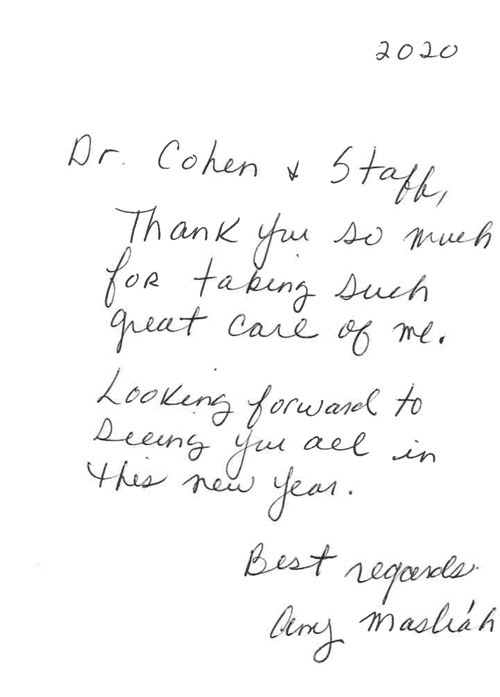 2020
Dr. Cohen & Staff,
Thank you so much
for taking such
great care of me.
Looking forward to
seeing you all in
this new year.
Best regards
Amy Masliah